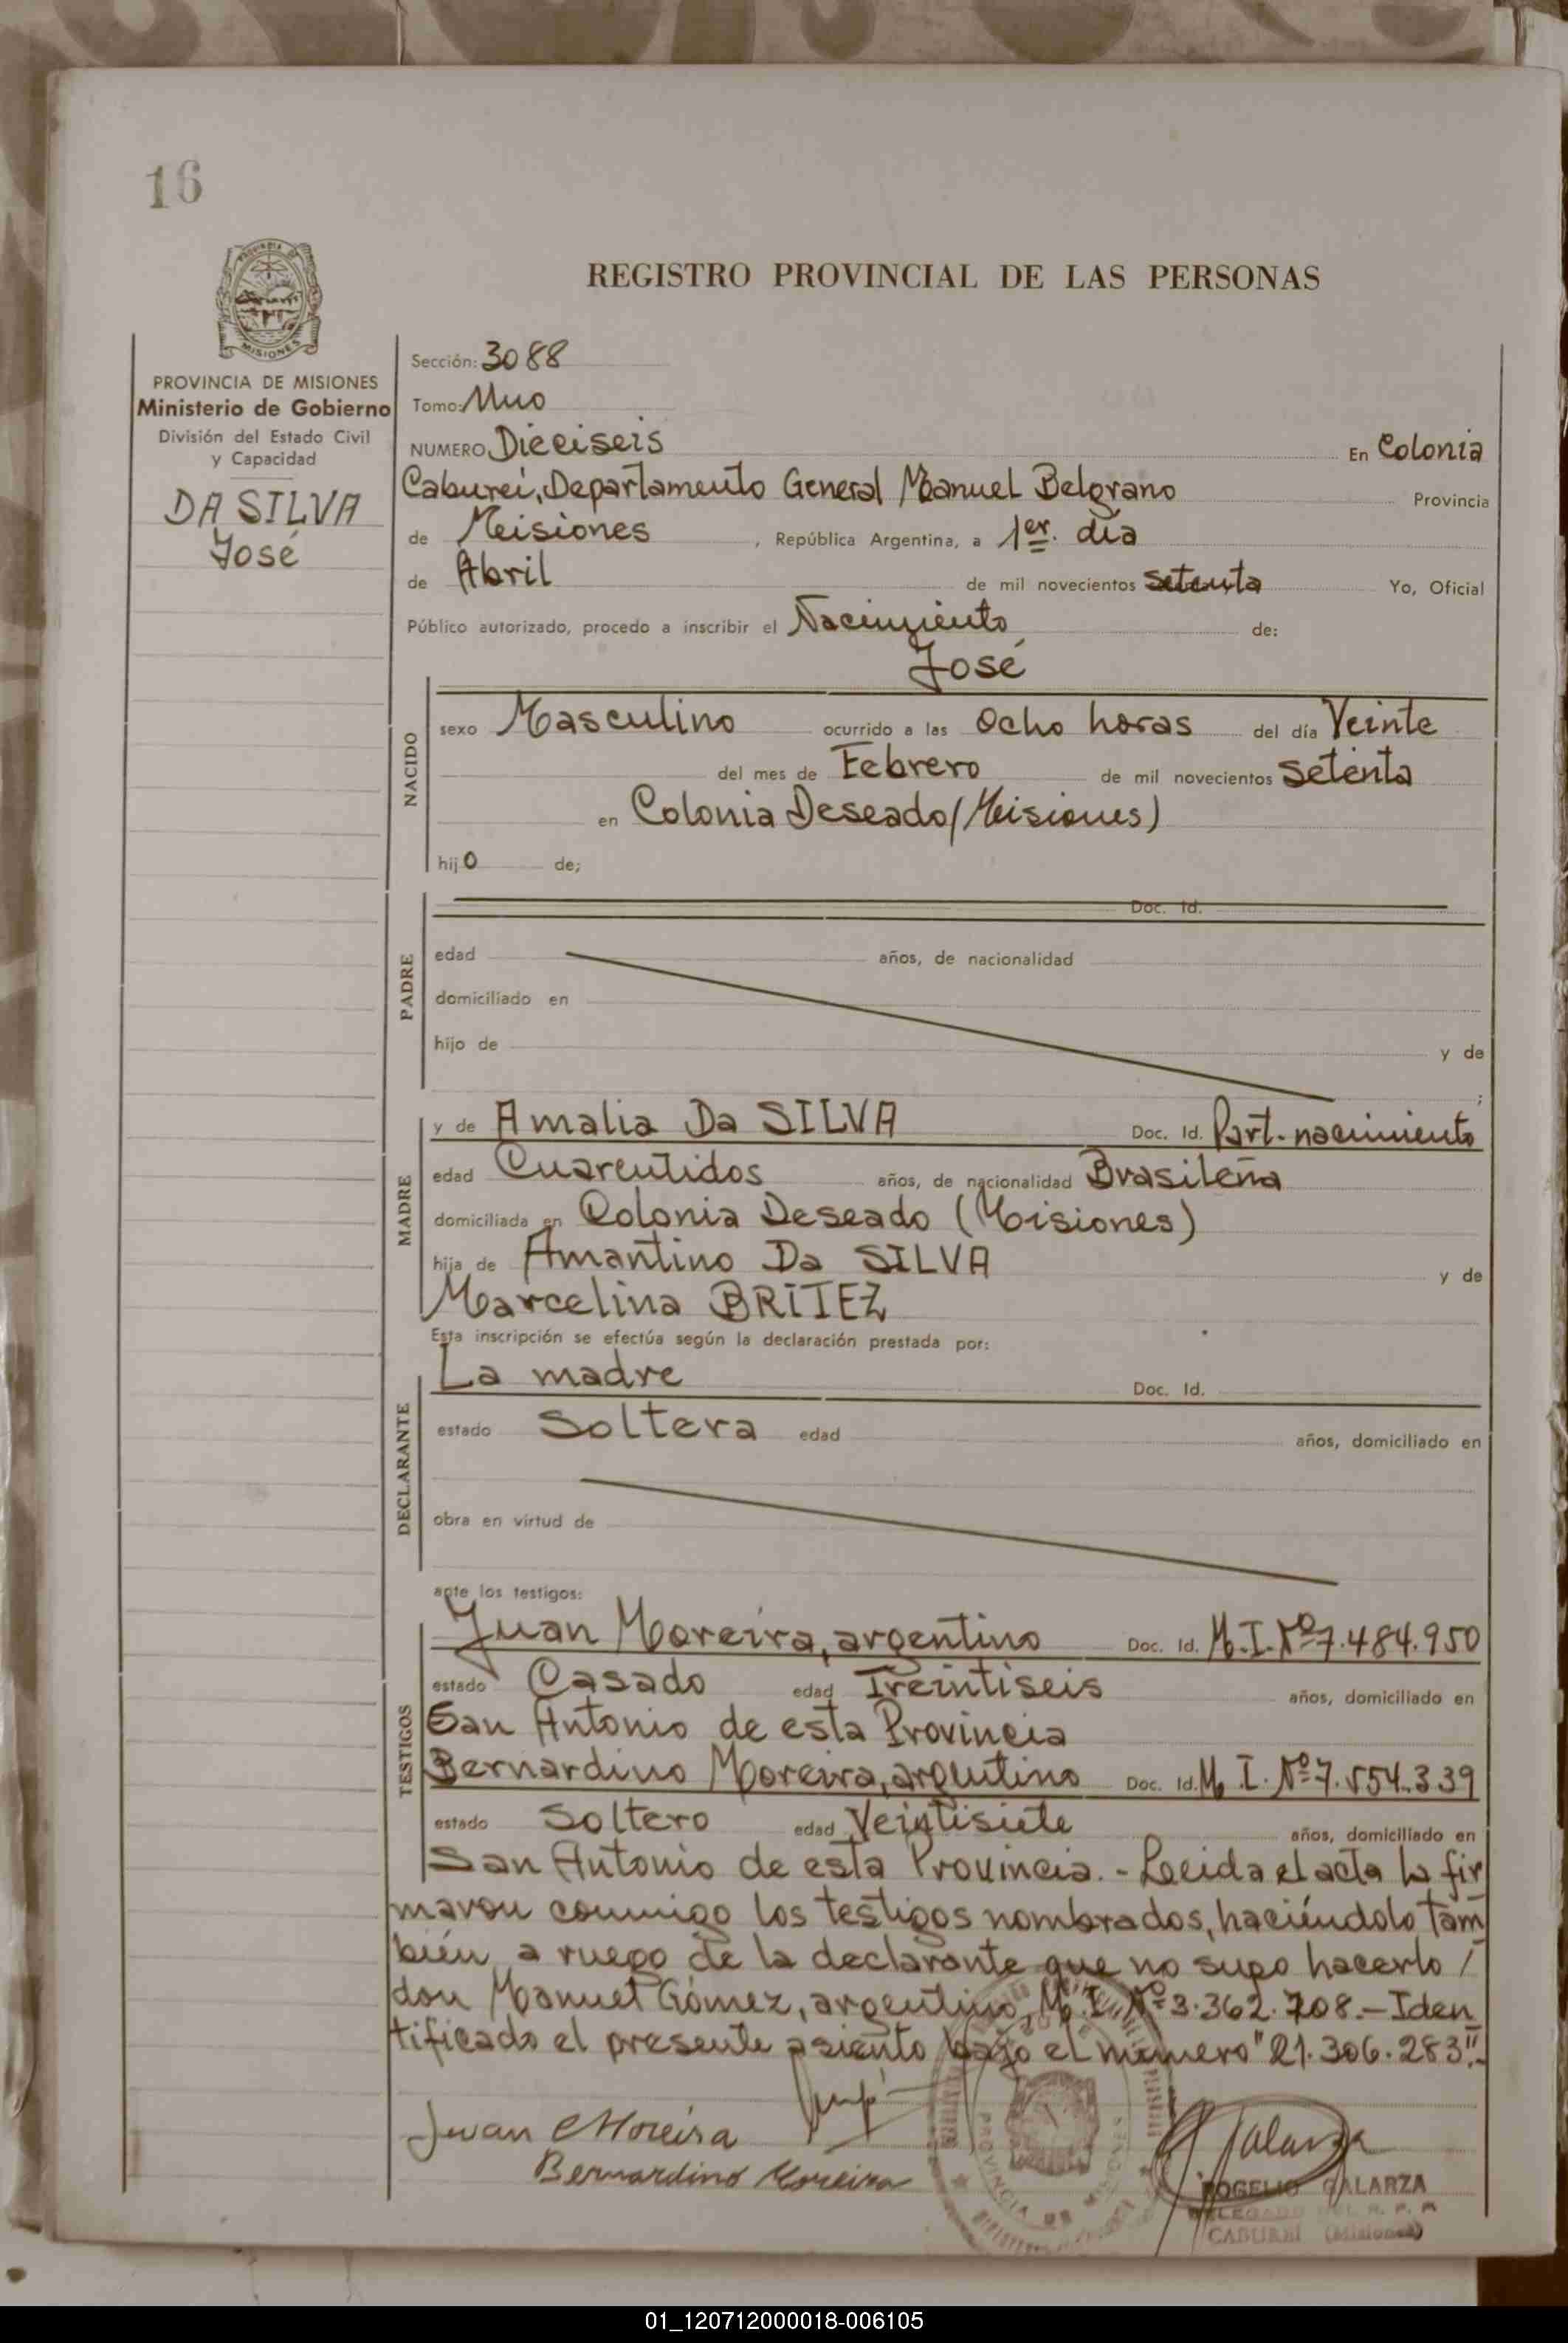 16
REGISTRO PROVINCIAL DE LAS PERSONAS
PROVINCIA DE
MISIONES
PROVINCIA DE MISIONES
Ministerio de Gobierno
División del Estado Civil
y Capacidad
DA SILVA
José
Sección: 3088
Tomo: Uno
NUMERO Dieciseis En Colonia
Caburei, Departamento General Manuel Belgrano Provincia
de Misiones , República Argentina, a 1er. día
de Abril de mil novecientos setenta Yo, Oficial
Público autorizado, procedo a inscribir el Nacimiento de:
José
NACIDO
sexo Masculino ocurrido a las Ocho horas del día Veinte
del mes de Febrero de mil novecientos Setenta
en Colonia Deseado (Misiones)
hijo de;
PADRE
Doc. Id.
edad años, de nacionalidad
domiciliado en
hijo de y de
;
MADRE
y de Amalia Da SILVA Doc. Id. Part. nacimiento
edad Cuarentidos años, de nacionalidad Brasileña
domiciliada en Colonia Deseado (Misiones)
hija de Amantino Da SILVA y de
Marcelina BRITEZ
Esta inscripción se efectúa según la declaración prestada por:
DECLARANTE
La madre Doc. Id.
estado Soltera edad años, domiciliado en
obra en virtud de
ante los testigos:
TESTIGOS
Juan Moreira, argentino Doc. Id. M.I.Nº 7.484.950
estado Casado edad Treintiseis años, domiciliado en
San Antonio de esta Provincia
Bernardino Moreira, argentino Doc. Id. M.I.Nº 7.554.339
estado Soltero edad Veintisiete años, domiciliado en
San Antonio de esta Provincia.- Leida el acta la fir
maron conmigo los testigos nombrados, haciéndolo tam
bién a ruego de la declarante que no supo hacerlo /
don Manuel Gómez, argentino, M.I. Nº 3.362.708.- Iden
tificado el presente asiento bajo el número "21.306.283".-
Juan Moreira
Bernardino Moreira
PROVINCIA DE MISIONES
Galarza
ROGELIO GALARZA
DELEGADO DEL R. P. P.
CABUREI (Misiones)
01_120712000018-006105